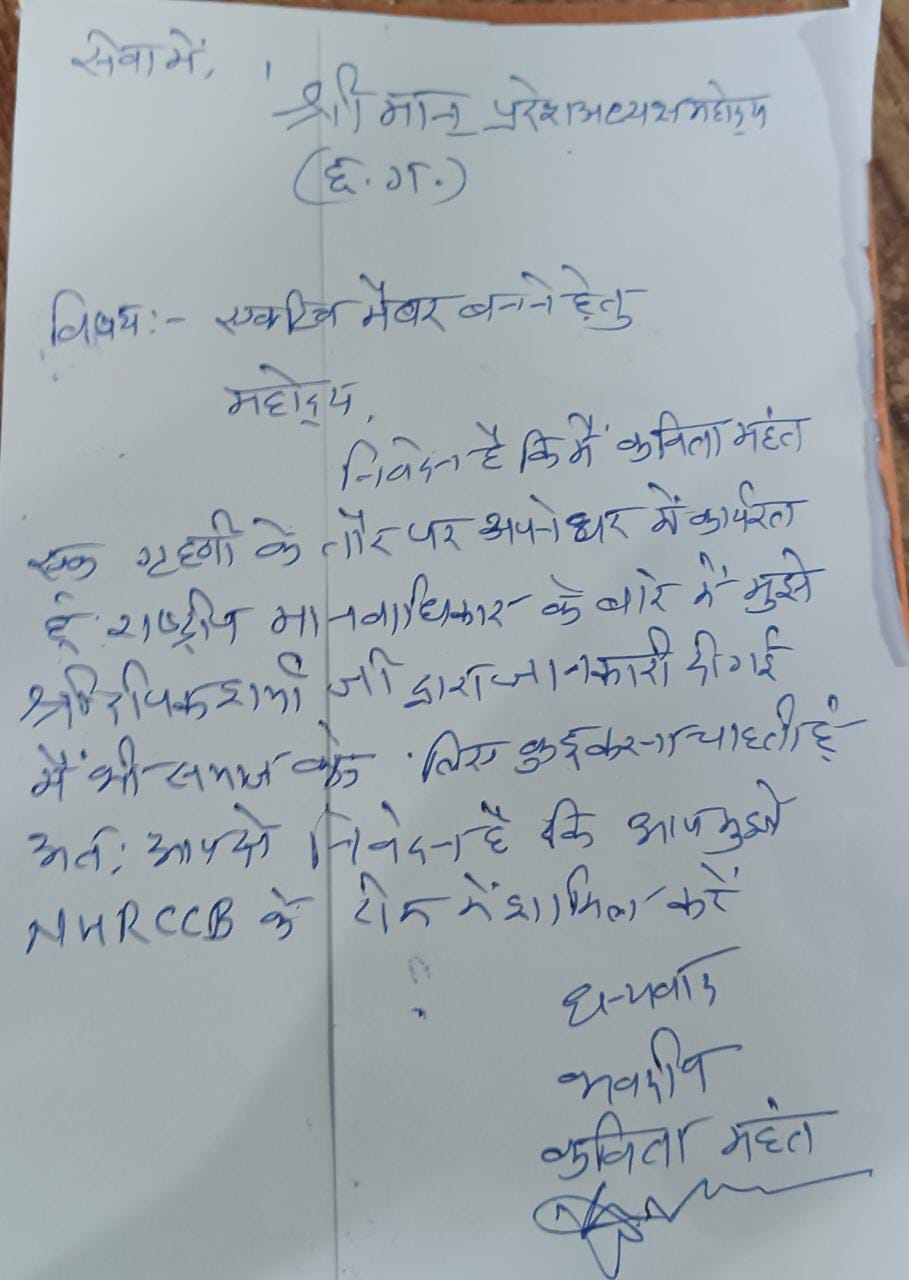 सेवा में,
श्री मान् प्रदेश अध्यक्ष महोदय
(छ. ग.)
विषय:- एक्टिव मेंबर बनने हेतु
महोदय,
निवेदन है कि मैं कविता महंत
एक गृहणी के तौर पर अपने घर में कार्यरत
हूं. राष्ट्रीय मानवाधिकार के बारे में मुझे
श्री दीपक शर्मा जी द्वारा जानकारी दी गई
मैं भी समाज के लिए कुछ करना चाहती हूं
अत: आपसे निवेदन है कि आप मुझे
NHRCCB के टीम में शामिल करें
धन्यवाद
भवदीय
कविता महंत